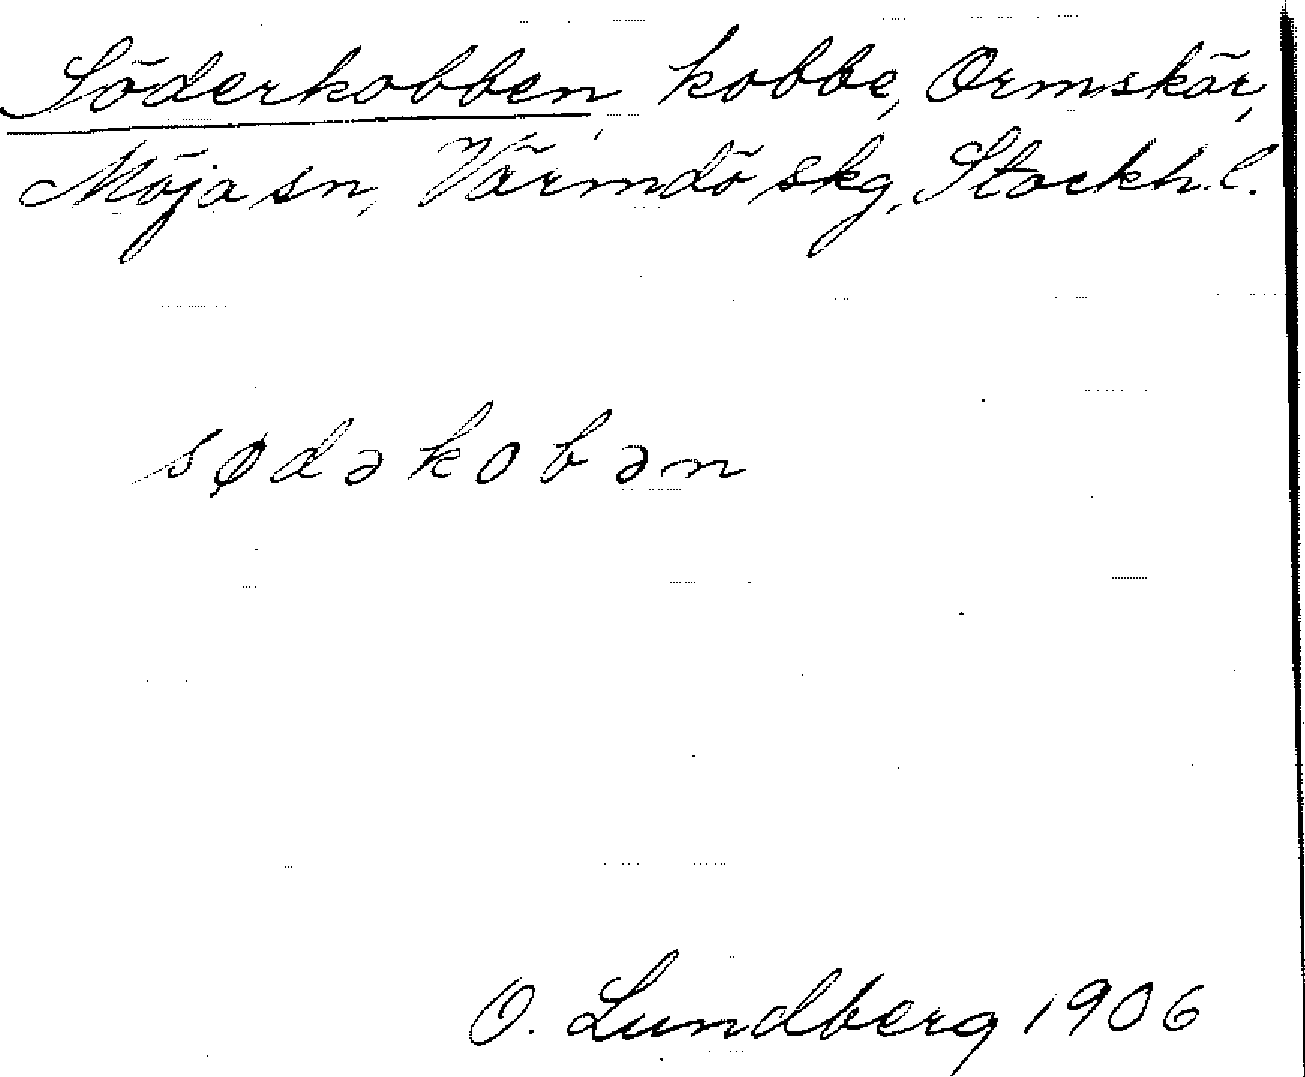 Söderkobben, kobbe, Ormskär,
Möja sn, Värmdö skg, Stockh. l.
sødəkobən
O. Lundberg 1906